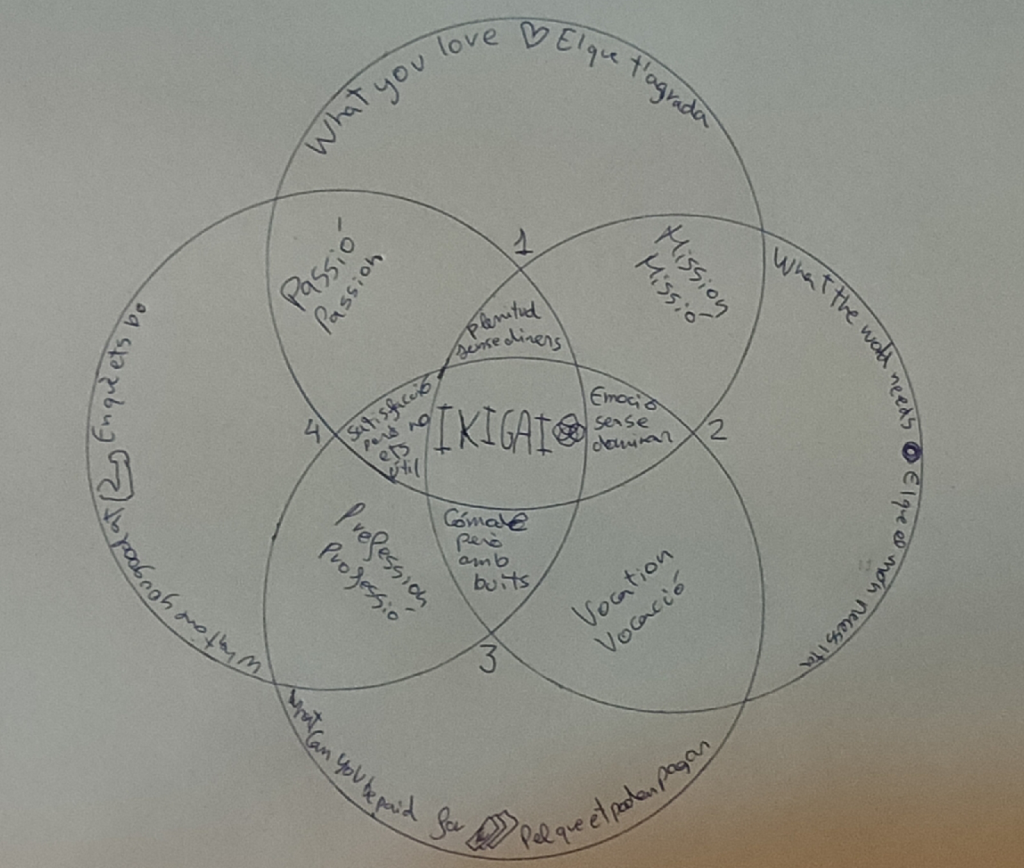 What you love ♡ El que t'agrada
Passió
Passion
1
Mission
Missió
What the world needs
El que el món necessita
plenitud
sense diners
En què ets bo
What are you good at
4
Satisfacció
però no
ets
útil
IKIGAI
Emoció
sense
dominar
2
Profession
Professió
Cómode
però
amb
buits
Vocation
Vocació
3
What can you be paid for
Pel que et poden pagar